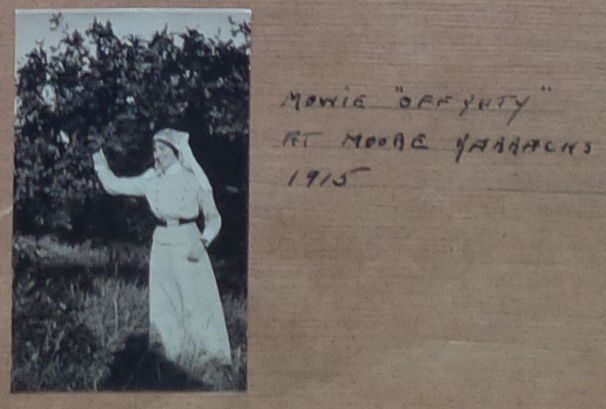 MOWIE "OFF DUTY"
AT MOORE BARRACKS
1915